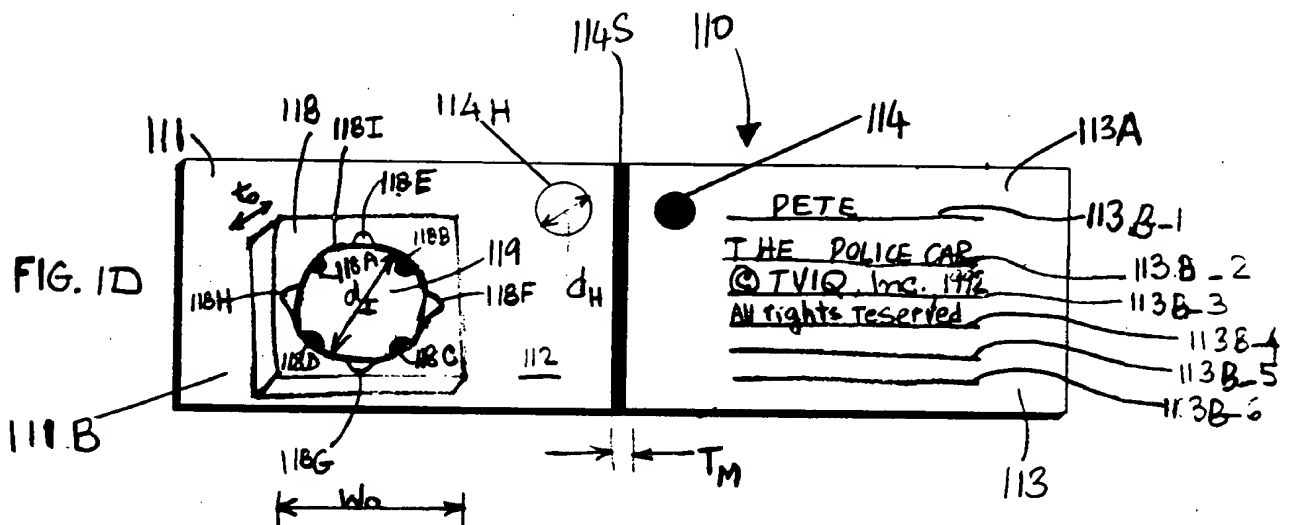 114S
110
114H
114
118
118I
111
113A
118E
t₀
118B
PETE
113B-1
118A
119
THE POLICE CAR
113B-2
FIG. 1D
118H
d_I
118F
d_H
© TVIQ, Inc. 1992
113B-3
All rights reserved
113B-4
118D
118C
112
113B-5
113B-6
111B
118G
T_M
113
W₀